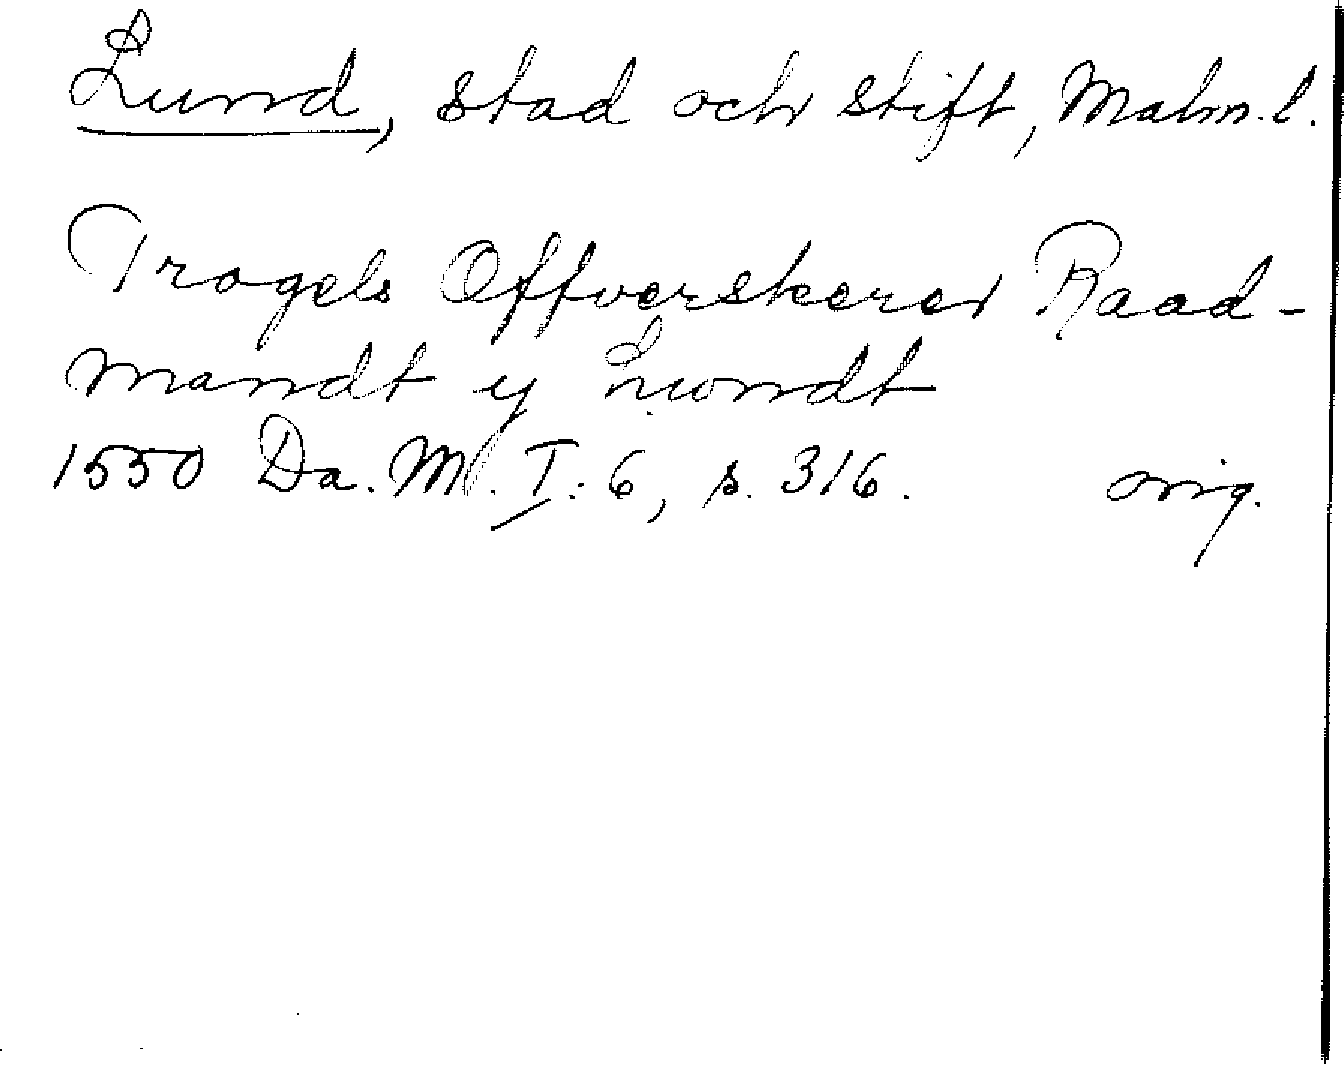 Lund, stad och stift, Malm.l.
Trogels Offverskerer Raad-
mandt y Lwndt
1550 Da. M. I: 6, s. 316. orig.